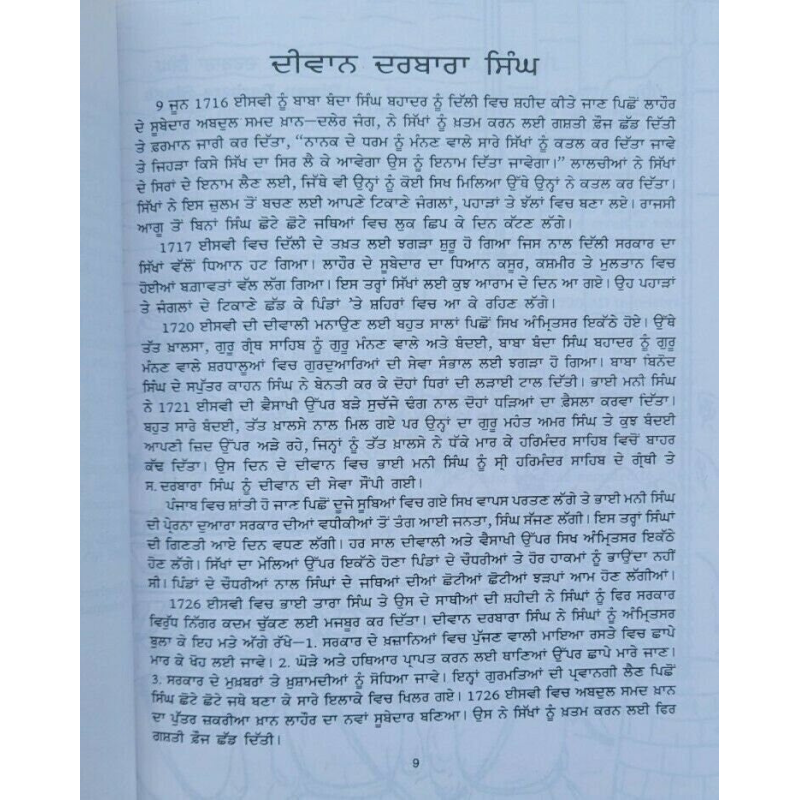 ਦੀਵਾਨ ਦਰਬਾਰਾ ਸਿੰਘ
9 ਜੂਨ 1716 ਈਸਵੀ ਨੂੰ ਬਾਬਾ ਬੰਦਾ ਸਿੰਘ ਬਹਾਦਰ ਨੂੰ ਦਿੱਲੀ ਵਿਚ ਸ਼ਹੀਦ ਕੀਤੇ ਜਾਣ ਪਿਛੋਂ ਲਾਹੌਰ
ਦੇ ਸੂਬੇਦਾਰ ਅਬਦੁਲ ਸਮਦ ਖ਼ਾਨ—ਦਲੇਰ ਜੰਗ, ਨੇ ਸਿੱਖਾਂ ਨੂੰ ਖ਼ਤਮ ਕਰਨ ਲਈ ਗਸ਼ਤੀ ਫ਼ੌਜ ਛੱਡ ਦਿੱਤੀ
ਤੇ ਫ਼ਰਮਾਨ ਜਾਰੀ ਕਰ ਦਿੱਤਾ, “ਨਾਨਕ ਦੇ ਧਰਮ ਨੂੰ ਮੰਨਣ ਵਾਲੇ ਸਾਰੇ ਸਿੱਖਾਂ ਨੂੰ ਕਤਲ ਕਰ ਦਿੱਤਾ ਜਾਵੇ
ਤੇ ਜਿਹੜਾ ਕਿਸੇ ਸਿੱਖ ਦਾ ਸਿਰ ਲੈ ਕੇ ਆਵੇਗਾ ਉਸ ਨੂੰ ਇਨਾਮ ਦਿੱਤਾ ਜਾਵੇਗਾ।” ਲਾਲਚੀਆਂ ਨੇ ਸਿੱਖਾਂ
ਦੇ ਸਿਰਾਂ ਦੇ ਇਨਾਮ ਲੈਣ ਲਈ, ਜਿੱਥੇ ਵੀ ਉਨ੍ਹਾਂ ਨੂੰ ਕੋਈ ਸਿਖ ਮਿਲਿਆ ਉੱਥੇ ਉਨ੍ਹਾਂ ਨੇ ਕਤਲ ਕਰ ਦਿੱਤਾ।
ਸਿੱਖਾਂ ਨੇ ਇਸ ਜ਼ੁਲਮ ਤੋਂ ਬਚਣ ਲਈ ਆਪਣੇ ਟਿਕਾਣੇ ਜੰਗਲਾਂ, ਪਹਾੜਾਂ ਤੇ ਝੱਲਾਂ ਵਿਚ ਬਣਾ ਲਏ। ਰਾਜਸੀ
ਆਗੂ ਤੋਂ ਬਿਨਾਂ ਸਿੰਘ ਛੋਟੇ ਛੋਟੇ ਜਥਿਆਂ ਵਿਚ ਲੁਕ ਛਿਪ ਕੇ ਦਿਨ ਕੱਟਣ ਲੱਗੇ।
1717 ਈਸਵੀ ਵਿਚ ਦਿੱਲੀ ਦੇ ਤਖ਼ਤ ਲਈ ਝਗੜਾ ਸ਼ੁਰੂ ਹੋ ਗਿਆ ਜਿਸ ਨਾਲ ਦਿੱਲੀ ਸਰਕਾਰ ਦਾ
ਸਿੱਖਾਂ ਵੱਲੋਂ ਧਿਆਨ ਹਟ ਗਿਆ। ਲਾਹੌਰ ਦੇ ਸੂਬੇਦਾਰ ਦਾ ਧਿਆਨ ਕਸੂਰ, ਕਸ਼ਮੀਰ ਤੇ ਮੁਲਤਾਨ ਵਿਚ
ਹੋਈਆਂ ਬਗ਼ਾਵਤਾਂ ਵੱਲ ਲੱਗ ਗਿਆ। ਇਸ ਤਰ੍ਹਾਂ ਸਿੱਖਾਂ ਲਈ ਕੁਝ ਆਰਾਮ ਦੇ ਦਿਨ ਆ ਗਏ। ਉਹ ਪਹਾੜਾਂ
ਤੇ ਜੰਗਲਾਂ ਦੇ ਟਿਕਾਣੇ ਛੱਡ ਕੇ ਪਿੰਡਾਂ 'ਤੇ ਸ਼ਹਿਰਾਂ ਵਿਚ ਆ ਕੇ ਰਹਿਣ ਲੱਗੇ।
1720 ਈਸਵੀ ਦੀ ਦੀਵਾਲੀ ਮਨਾਉਣ ਲਈ ਬਹੁਤ ਸਾਲਾਂ ਪਿਛੋਂ ਸਿਖ ਅੰਮ੍ਰਿਤਸਰ ਇਕੱਠੇ ਹੋਏ। ਉੱਥੇ
ਤੱਤ ਖ਼ਾਲਸਾ, ਗੁਰੂ ਗ੍ਰੰਥ ਸਾਹਿਬ ਨੂੰ ਗੁਰੂ ਮੰਨਣ ਵਾਲੇ ਅਤੇ ਬੰਦਈ, ਬਾਬਾ ਬੰਦਾ ਸਿੰਘ ਬਹਾਦਰ ਨੂੰ ਗੁਰੂ
ਮੰਨਣ ਵਾਲੇ ਸ਼ਰਧਾਲੂਆਂ ਵਿਚ ਗੁਰਦੁਆਰਿਆਂ ਦੀ ਸੇਵਾ ਸੰਭਾਲ ਲਈ ਝਗੜਾ ਹੋ ਗਿਆ। ਬਾਬਾ ਬਿਨੋਦ
ਸਿੰਘ ਦੇ ਸਪੁੱਤਰ ਕਾਹਨ ਸਿੰਘ ਨੇ ਬੇਨਤੀ ਕਰ ਕੇ ਦੋਹਾਂ ਧਿਰਾਂ ਦੀ ਲੜਾਈ ਟਾਲ ਦਿੱਤੀ। ਭਾਈ ਮਨੀ ਸਿੰਘ
ਨੇ 1721 ਈਸਵੀ ਦੀ ਵੈਸਾਖੀ ਉੱਪਰ ਬੜੇ ਸੁਚੱਜੇ ਢੰਗ ਨਾਲ ਦੋਹਾਂ ਧੜਿਆਂ ਦਾ ਫ਼ੈਸਲਾ ਕਰਵਾ ਦਿੱਤਾ।
ਬਹੁਤ ਸਾਰੇ ਬੰਦਈ, ਤੱਤ ਖ਼ਾਲਸੇ ਨਾਲ ਮਿਲ ਗਏ ਪਰ ਉਨ੍ਹਾਂ ਦਾ ਗੁਰੂ ਮਹੰਤ ਅਮਰ ਸਿੰਘ ਤੇ ਕੁਝ ਬੰਦਈ
ਆਪਣੀ ਜ਼ਿਦ ਉੱਪਰ ਅੜੇ ਰਹੇ, ਜਿਨ੍ਹਾਂ ਨੂੰ ਤੱਤ ਖ਼ਾਲਸੇ ਨੇ ਧੱਕੇ ਮਾਰ ਕੇ ਹਰਿਮੰਦਰ ਸਾਹਿਬ ਵਿਚੋਂ ਬਾਹਰ
ਕੱਢ ਦਿੱਤਾ। ਉਸ ਦਿਨ ਦੇ ਦੀਵਾਨ ਵਿਚ ਭਾਈ ਮਨੀ ਸਿੰਘ ਨੂੰ ਸ੍ਰੀ ਹਰਿਮੰਦਰ ਸਾਹਿਬ ਦੇ ਗ੍ਰੰਥੀ ਤੇ
ਸ. ਦਰਬਾਰਾ ਸਿੰਘ ਨੂੰ ਦੀਵਾਨ ਦੀ ਸੇਵਾ ਸੌਂਪੀ ਗਈ।
ਪੰਜਾਬ ਵਿਚ ਸ਼ਾਂਤੀ ਹੋ ਜਾਣ ਪਿਛੋਂ ਦੂਜੇ ਸੂਬਿਆਂ ਵਿਚ ਗਏ ਸਿਖ ਵਾਪਸ ਪਰਤਣ ਲੱਗੇ ਤੇ ਭਾਈ ਮਨੀ ਸਿੰਘ
ਦੀ ਪ੍ਰੇਰਨਾ ਦੁਆਰਾ ਸਰਕਾਰ ਦੀਆਂ ਵਧੀਕੀਆਂ ਤੋਂ ਤੰਗ ਆਈ ਜਨਤਾ, ਸਿੰਘ ਸੱਜਣ ਲੱਗੀ। ਇਸ ਤਰ੍ਹਾਂ ਸਿੰਘਾਂ
ਦੀ ਗਿਣਤੀ ਆਏ ਦਿਨ ਵਧਣ ਲੱਗੀ। ਹਰ ਸਾਲ ਦੀਵਾਲੀ ਅਤੇ ਵੈਸਾਖੀ ਉੱਪਰ ਸਿਖ ਅੰਮ੍ਰਿਤਸਰ ਇਕੱਠੇ
ਹੋਣ ਲੱਗੇ। ਸਿੱਖਾਂ ਦਾ ਮੇਲਿਆਂ ਉੱਪਰ ਇਕੱਠੇ ਹੋਣਾ ਪਿੰਡਾਂ ਦੇ ਚੌਧਰੀਆਂ ਤੇ ਹੋਰ ਹਾਕਮਾਂ ਨੂੰ ਭਾਉਂਦਾ ਨਹੀਂ
ਸੀ। ਪਿੰਡਾਂ ਦੇ ਚੌਧਰੀਆਂ ਨਾਲ ਸਿੰਘਾਂ ਦੇ ਜਥਿਆਂ ਦੀਆਂ ਛੋਟੀਆਂ ਛੋਟੀਆਂ ਝੜਪਾਂ ਆਮ ਹੋਣ ਲੱਗੀਆਂ।
1726 ਈਸਵੀ ਵਿਚ ਭਾਈ ਤਾਰਾ ਸਿੰਘ ਤੇ ਉਸ ਦੇ ਸਾਥੀਆਂ ਦੀ ਸ਼ਹੀਦੀ ਨੇ ਸਿੰਘਾਂ ਨੂੰ ਫਿਰ ਸਰਕਾਰ
ਵਿਰੁੱਧ ਨਿੱਗਰ ਕਦਮ ਚੁੱਕਣ ਲਈ ਮਜਬੂਰ ਕਰ ਦਿੱਤਾ। ਦੀਵਾਨ ਦਰਬਾਰਾ ਸਿੰਘ ਨੇ ਸਿੰਘਾਂ ਨੂੰ ਅੰਮ੍ਰਿਤਸਰ
ਬੁਲਾ ਕੇ ਇਹ ਮਤੇ ਅੱਗੇ ਰੱਖੇ—1. ਸਰਕਾਰ ਦੇ ਖ਼ਜ਼ਾਨਿਆਂ ਵਿਚ ਪੁੱਜਣ ਵਾਲੀ ਮਾਇਆ ਰਸਤੇ ਵਿਚ ਛਾਪੇ
ਮਾਰ ਕੇ ਖੋਹ ਲਈ ਜਾਵੇ। 2. ਘੋੜੇ ਅਤੇ ਹਥਿਆਰ ਪ੍ਰਾਪਤ ਕਰਨ ਲਈ ਥਾਣਿਆਂ ਉੱਪਰ ਛਾਪੇ ਮਾਰੇ ਜਾਣ।
3. ਸਰਕਾਰ ਦੇ ਮੁਖ਼ਬਰਾਂ ਤੇ ਖ਼ੁਸ਼ਾਮਦੀਆਂ ਨੂੰ ਸੋਧਿਆ ਜਾਵੇ। ਇਨ੍ਹਾਂ ਗੁਰਮਤਿਆਂ ਦੀ ਪ੍ਰਵਾਨਗੀ ਲੈਣ ਪਿਛੋਂ
ਸਿੰਘ ਛੋਟੇ ਛੋਟੇ ਜਥੇ ਬਣਾ ਕੇ ਸਾਰੇ ਇਲਾਕੇ ਵਿਚ ਖਿਲਰ ਗਏ। 1726 ਈਸਵੀ ਵਿਚ ਅਬਦੁਲ ਸਮਦ ਖ਼ਾਨ
ਦਾ ਪੁੱਤਰ ਜ਼ਕਰੀਆ ਖ਼ਾਨ ਲਾਹੌਰ ਦਾ ਨਵਾਂ ਸੂਬੇਦਾਰ ਬਣਿਆ। ਉਸ ਨੇ ਸਿੱਖਾਂ ਨੂੰ ਖ਼ਤਮ ਕਰਨ ਲਈ ਫਿਰ
ਗਸ਼ਤੀ ਫ਼ੌਜ ਛੱਡ ਦਿੱਤੀ।
9